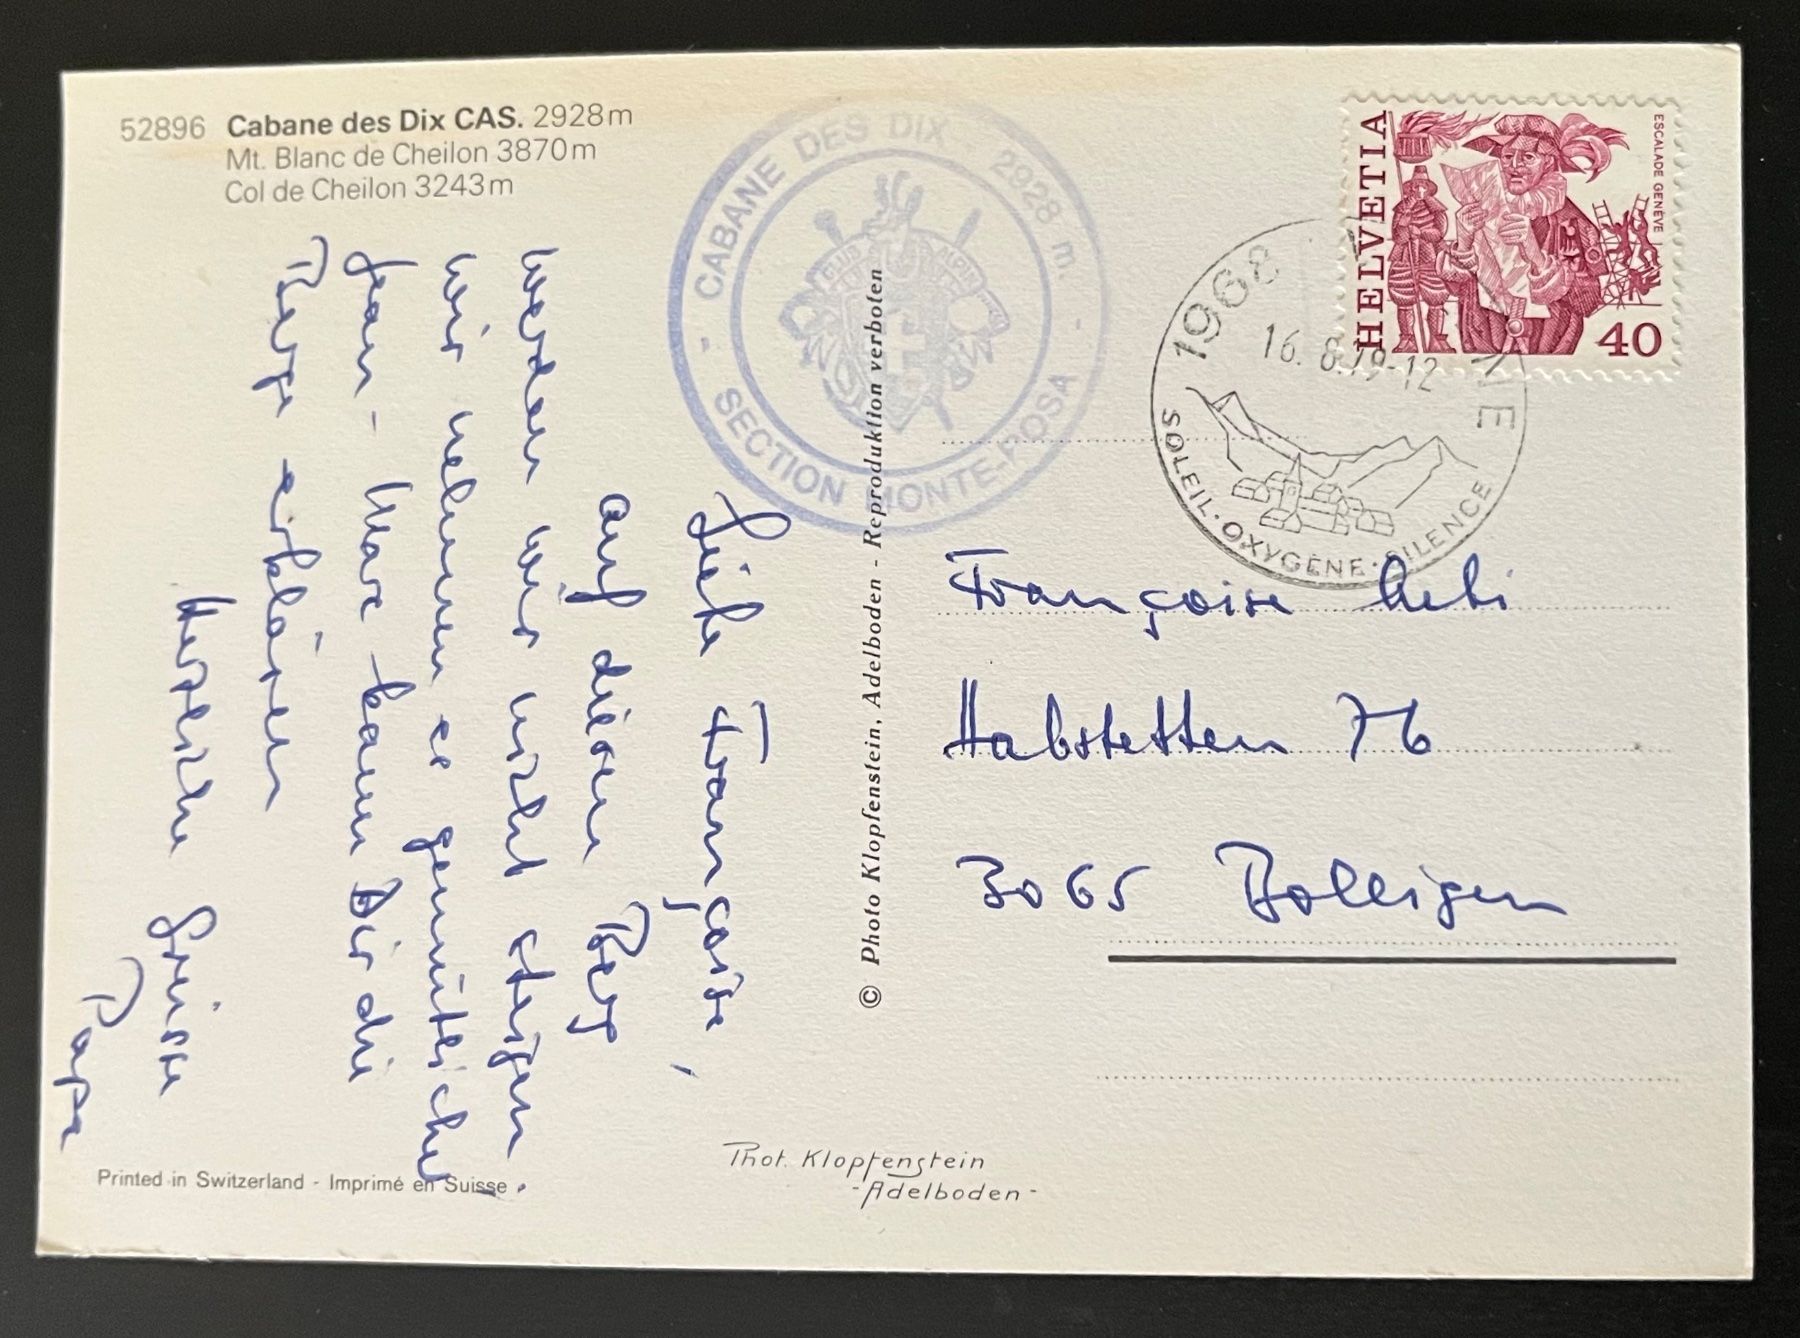 52896 Cabane des Dix CAS. 2928m
Mt. Blanc de Cheilon 3870m
Col de Cheilon 3243m
CABANE DES DIX 2928 m.
- SECTION MONTE-ROSA -
CLUB ALPIN
HELVETIA
ESCALADE GENÈVE
40
1968
16. 8.79-12
SOLEIL · OXYGÈNE · SILENCE
Liebe Françoise,
auf diesen Berg
werden wir nicht steigen
wir nehmen es gemütlicher.
Jean-Marc kann Dir die
Berge erklären
Herzliche Grüsse
Papa
© Photo Klopfenstein, Adelboden - Reproduktion verboten
Françoise Aebi
Habstetten 76
3065 Bolligen
Phot. Klopfenstein
- Adelboden -
Printed in Switzerland - Imprimé en Suisse